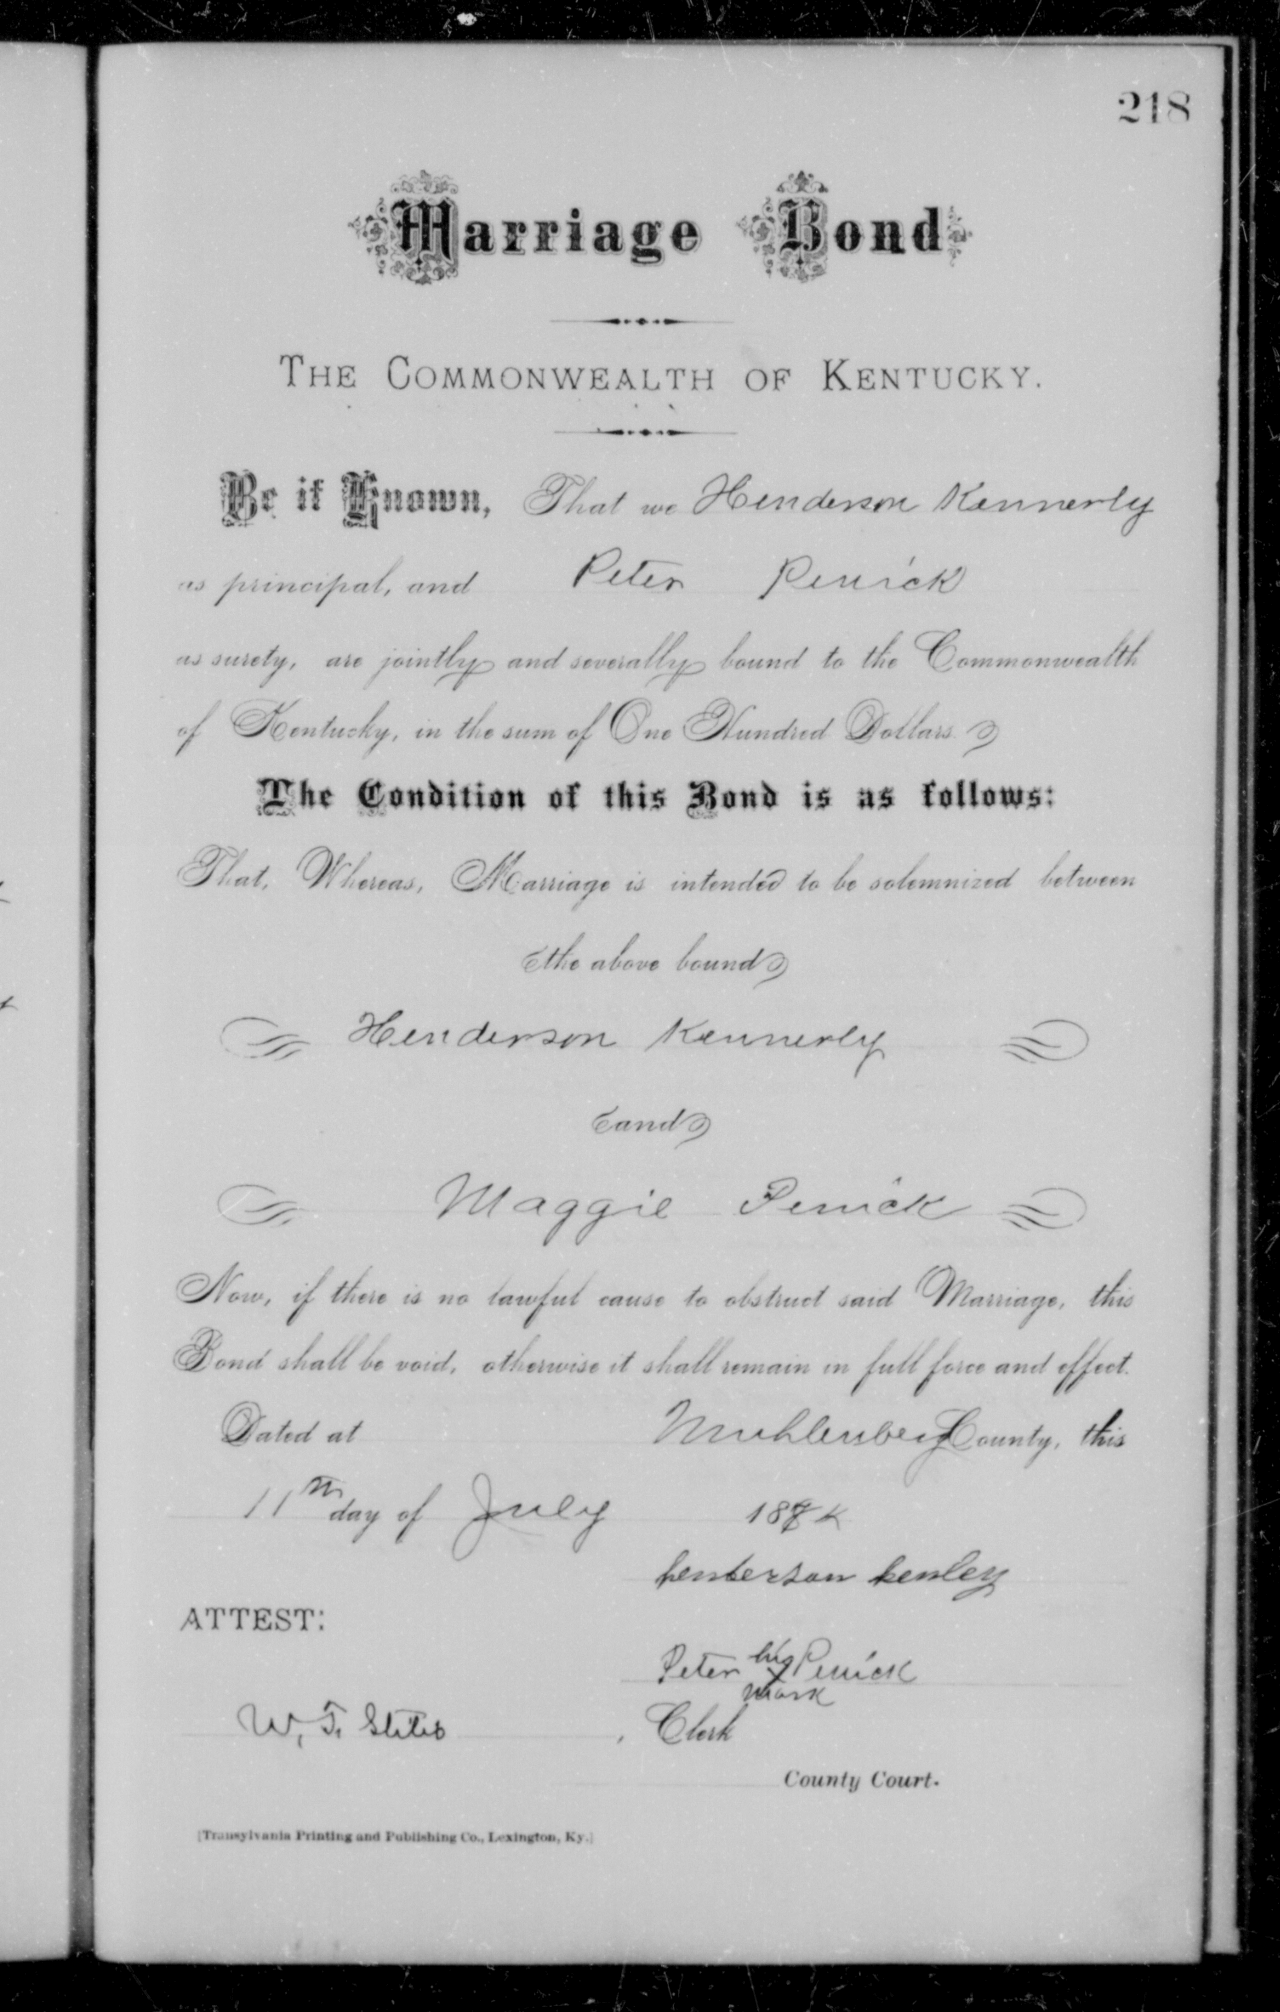 218
Marriage Bond
THE COMMONWEALTH OF KENTUCKY.
Be it Known, That we Henderson Kennerly
as principal, and Peter Penick
as surety, are jointly and severally bound to the Commonwealth
of Kentucky, in the sum of One Hundred Dollars.
The Condition of this Bond is as follows:
That, Whereas, Marriage is intended to be solemnized between
the above bound
Henderson Kennerly
and
Maggie Penick
Now, if there is no lawful cause to obstruct said Marriage, this
Bond shall be void, otherwise it shall remain in full force and effect.
Dated at Muhlenberg County, this
11th day of July
henderson kenley
ATTEST:
Peter his x Penick
mark
W. T. Stiles, Clerk
County Court.
[Transylvania Printing and Publishing Co., Lexington, Ky.]